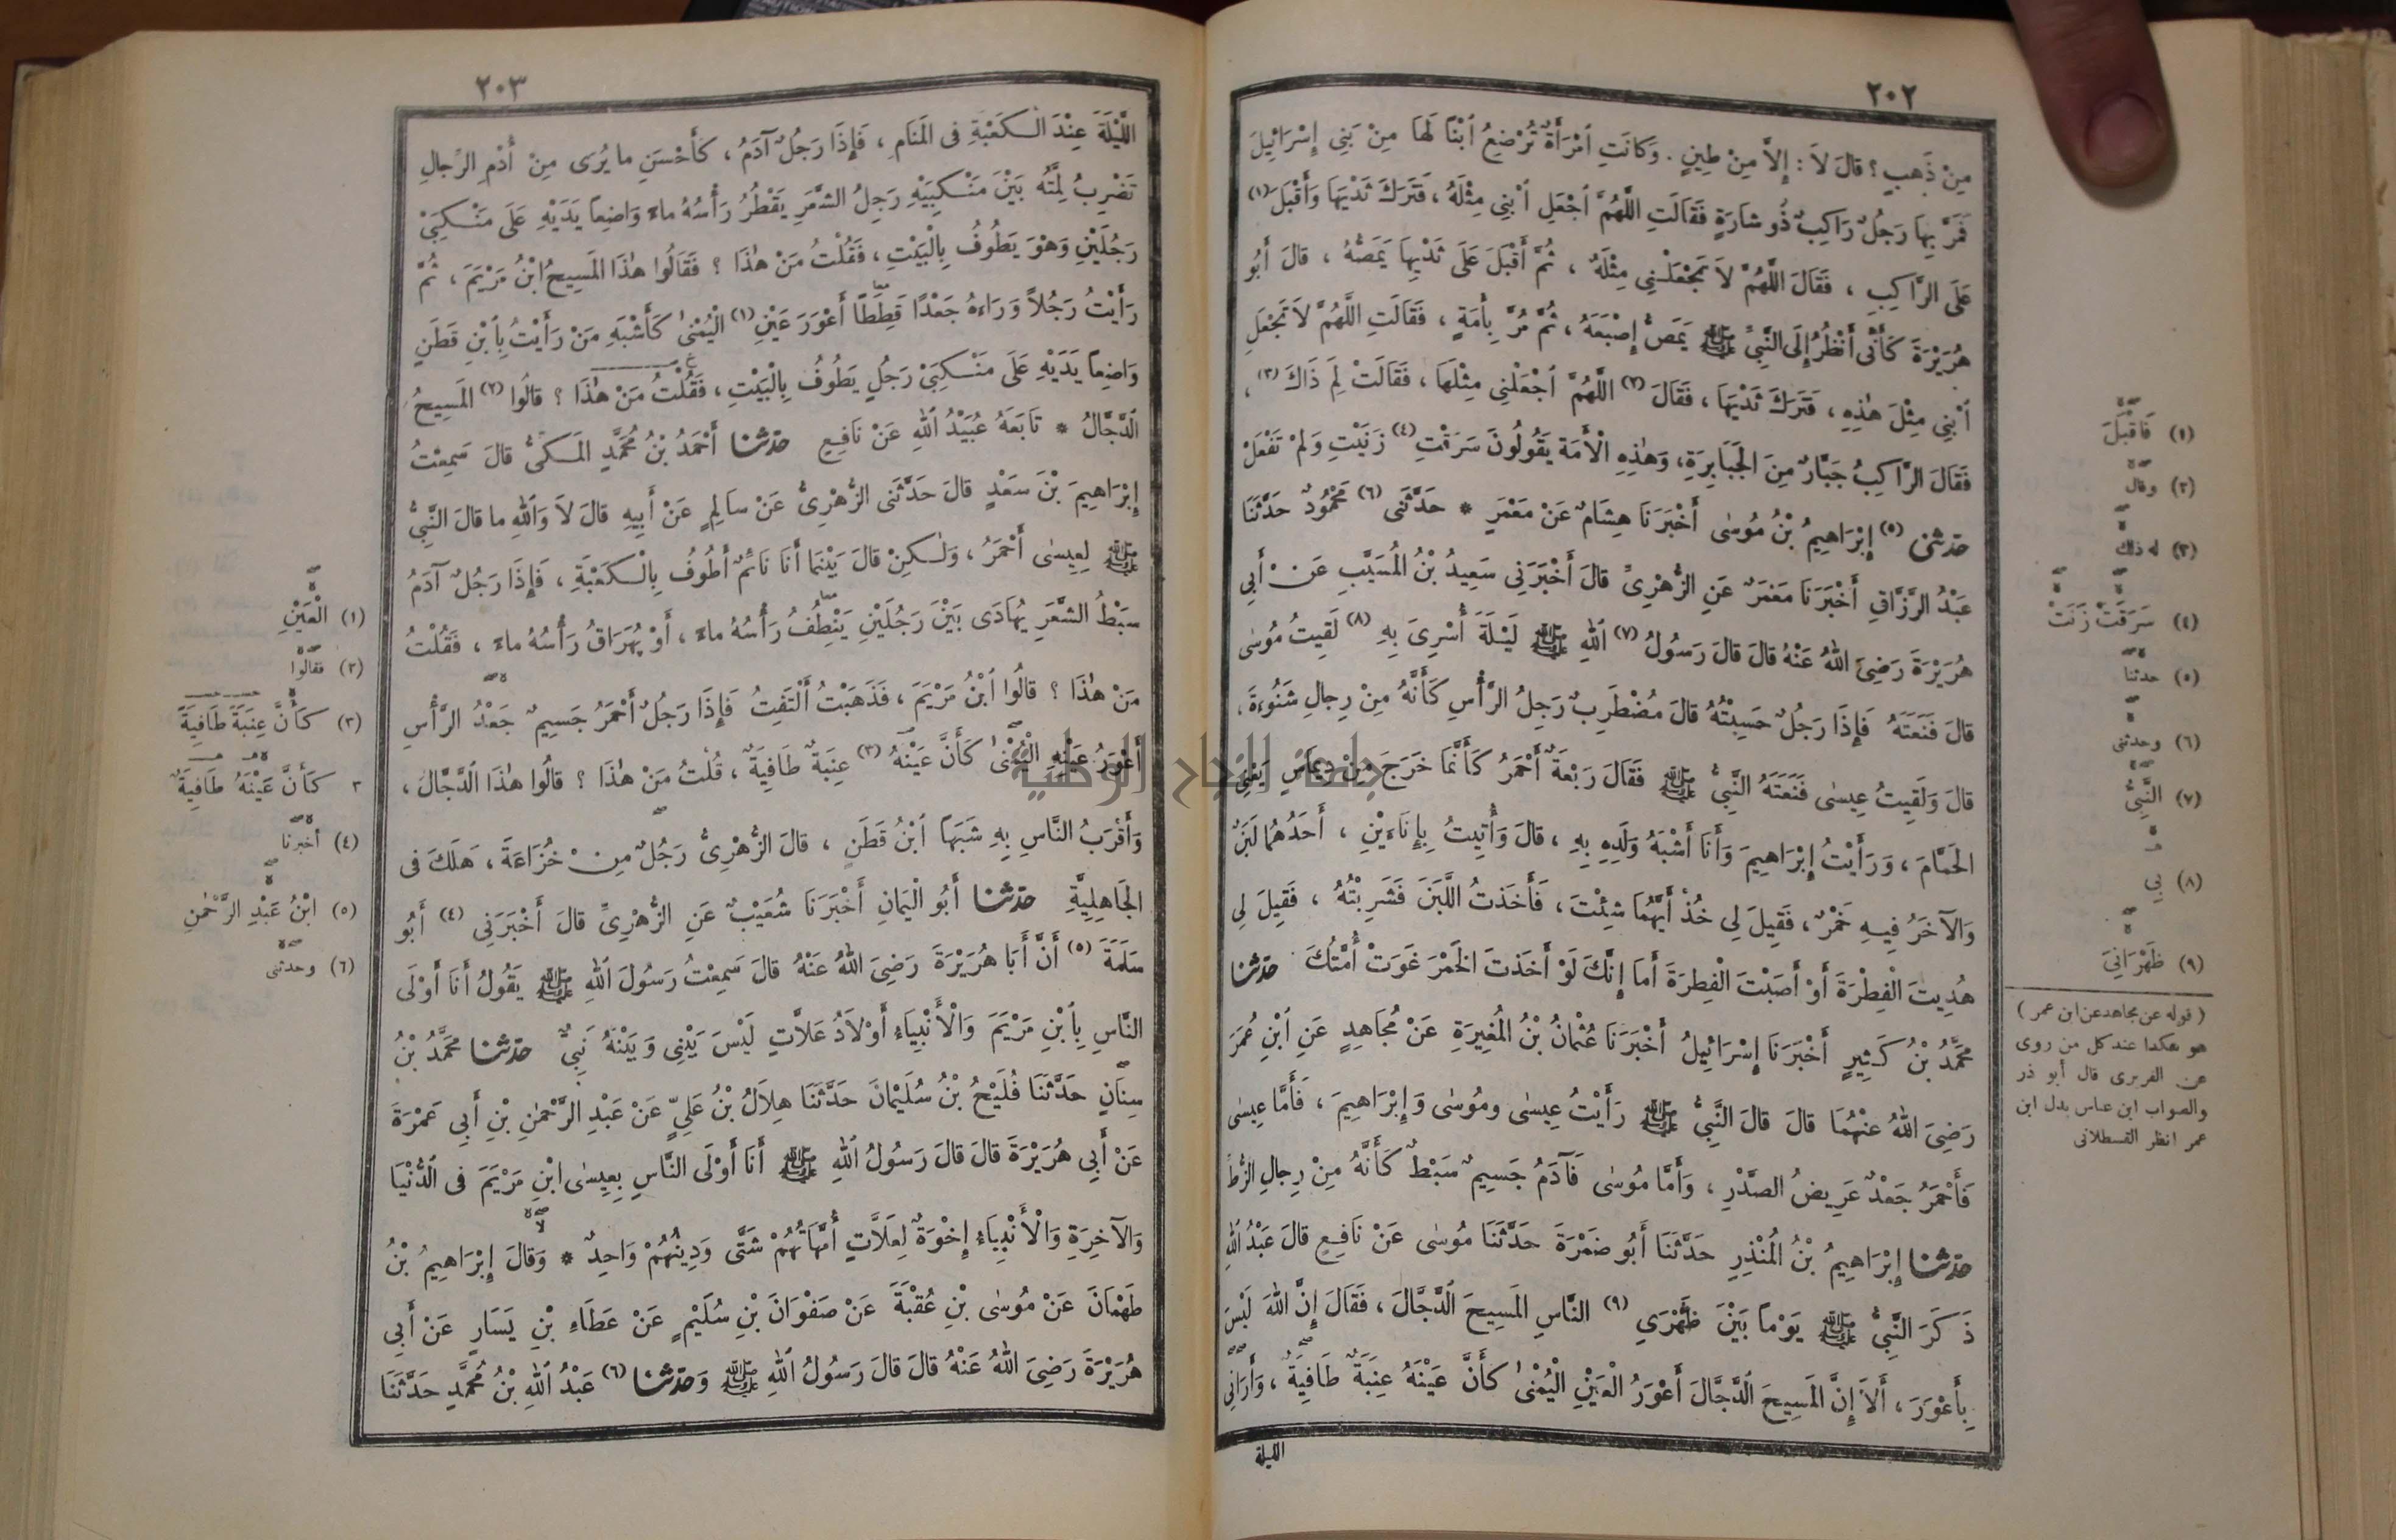 ٢٠٢
مِنْ ذَهَبٍ ؟ قَالَ لَا : إِلَّا مِنْ طِينٍ . وَكَانَتِ ٱمْرَأَةٌ تُرْضِعُ ٱبْنًا لَهَا مِنْ بَنِي إِسْرَائِيلَ
فَمَرَّ بِهَا رَجُلٌ رَاكِبٌ ذُو شَارَةٍ فَقَالَتِ اللَّهُمَّ ٱجْعَلِ ٱبْنِي مِثْلَهُ ، فَتَرَكَ ثَدْيَهَا وَأَقْبَلَ (١)
عَلَى الرَّاكِبِ ، فَقَالَ اللَّهُمَّ لَا تَجْعَلْنِي مِثْلَهُ ، ثُمَّ أَقْبَلَ عَلَى ثَدْيِهَا يَمَصُّهُ ، قَالَ أَبُو
هُرَيْرَةَ كَأَنِّي أَنْظُرُ إِلَى النَّبِيِّ ﷺ يَمَصُّ إِصْبَعَهُ ، ثُمَّ مُرَّ بِأَمَةٍ ، فَقَالَتِ اللَّهُمَّ لَا تَجْعَلِ
ٱبْنِي مِثْلَ هٰذِهِ ، فَتَرَكَ ثَدْيَهَا ، فَقَالَ (٢) اللَّهُمَّ ٱجْعَلْنِي مِثْلَهَا ، فَقَالَتْ لِمَ ذَاكَ (٣) ،
فَقَالَ الرَّاكِبُ جَبَّارٌ مِنَ الْجَبَابِرَةِ ، وَهٰذِهِ الْأَمَةُ يَقُولُونَ سَرَقْتِ (٤) زَنَيْتِ وَلَمْ تَفْعَلْ
حدثني (٥) إِبْرَاهِيمُ بْنُ مُوسٰى أَخْبَرَنَا هِشَامٌ عَنْ مَعْمَرٍ * حَدَّثَنِي (٦) مَحْمُودٌ حَدَّثَنَا
عَبْدُ الرَّزَّاقِ أَخْبَرَنَا مَعْمَرٌ عَنِ الزُّهْرِيِّ قَالَ أَخْبَرَنِي سَعِيدُ بْنُ الْمُسَيَّبِ عَنْ أَبِي
هُرَيْرَةَ رَضِيَ اللّٰهُ عَنْهُ قَالَ قَالَ رَسُولُ (٧) اللّٰهِ ﷺ لَيْلَةَ أُسْرِيَ بِهِ (٨) لَقِيتُ مُوسٰى
قَالَ فَنَعَتَهُ فَإِذَا رَجُلٌ حَسِبْتُهُ قَالَ مُضْطَرِبٌ رَجِلُ الرَّأْسِ كَأَنَّهُ مِنْ رِجَالِ شَنُوءَةَ ،
قَالَ وَلَقِيتُ عِيسٰى فَنَعَتَهُ النَّبِيُّ ﷺ فَقَالَ رَبْعَةٌ أَحْمَرُ كَأَنَّمَا خَرَجَ مِنْ دِيمَاسٍ يَعْنِي
الْحَمَّامَ ، وَرَأَيْتُ إِبْرَاهِيمَ وَأَنَا أَشْبَهُ وَلَدِهِ بِهِ ، قَالَ وَأُتِيتُ بِإِنَاءَيْنِ ، أَحَدُهُمَا لَبَنٌ
وَالآخَرُ فِيهِ خَمْرٌ ، فَقِيلَ لِي خُذْ أَيَّهُمَا شِئْتَ ، فَأَخَذْتُ اللَّبَنَ فَشَرِبْتُهُ ، فَقِيلَ لِي
هُدِيتَ الْفِطْرَةَ أَوْ أَصَبْتَ الْفِطْرَةَ أَمَا إِنَّكَ لَوْ أَخَذْتَ الْخَمْرَ غَوَتْ أُمَّتُكَ حدثنا
مُحَمَّدُ بْنُ كَثِيرٍ أَخْبَرَنَا إِسْرَائِيلُ أَخْبَرَنَا عُثْمَانُ بْنُ الْمُغِيرَةِ عَنْ مُجَاهِدٍ عَنِ ٱبْنِ عُمَرَ
رَضِيَ اللّٰهُ عَنْهُمَا قَالَ قَالَ النَّبِيُّ ﷺ رَأَيْتُ عِيسٰى ومُوسٰى وَإِبْرَاهِيمَ ، فَأَمَّا عِيسٰى
فَأَحْمَرُ جَعْدٌ عَرِيضُ الصَّدْرِ ، وَأَمَّا مُوسٰى فَآدَمُ جَسِيمٌ سَبْطٌ كَأَنَّهُ مِنْ رِجَالِ الزُّطِّ
حدثنا إِبْرَاهِيمُ بْنُ الْمُنْذِرِ حَدَّثَنَا أَبُو ضَمْرَةَ حَدَّثَنَا مُوسٰى عَنْ نَافِعٍ قَالَ عَبْدُ اللّٰهِ
ذَكَرَ النَّبِيُّ ﷺ يَوْمًا بَيْنَ ظَهْرَيِ (٩) النَّاسِ الْمَسِيحَ الدَّجَّالَ ، فَقَالَ إِنَّ اللّٰهَ لَيْسَ
بِأَعْوَرَ ، أَلَا إِنَّ الْمَسِيحَ الدَّجَّالَ أَعْوَرُ الْعَيْنِ الْيُمْنٰى كَأَنَّ عَيْنَهُ عِنَبَةٌ طَافِيَةٌ ، وَأَرَانِي
الليلة
(١) فَأَقْبَلَ
(٢) وقال
(٣) له ذلك
(٤) سَرَقَتْ زَنَتْ
(٥) حدثنا
(٦) وحدثني
(٧) النَّبِيُّ
(٨) بِي
(٩) ظَهْرَانَيِ
( قوله عن مجاهد عن ابن عمر )
هو هكذا عند كل من روى
عن الفربرى قال أبو ذر
والصواب ابن عباس بدل ابن
عمر انظر القسطلانى
٢٠٣
اللَّيْلَةَ عِنْدَ الْكَعْبَةِ فِي الْمَنَامِ ، فَإِذَا رَجُلٌ آدَمُ ، كَأَحْسَنِ مَا يُرَى مِنْ أُدْمِ الرِّجَالِ
تَضْرِبُ لِمَّتُهُ بَيْنَ مَنْكِبَيْهِ رَجِلُ الشَّعَرِ يَقْطُرُ رَأْسُهُ مَاءً وَاضِعًا يَدَيْهِ عَلَى مَنْكِبَيْ
رَجُلَيْنِ وَهْوَ يَطُوفُ بِالْبَيْتِ ، فَقُلْتُ مَنْ هٰذَا ؟ فَقَالُوا هٰذَا الْمَسِيحُ ابْنُ مَرْيَمَ ، ثُمَّ
رَأَيْتُ رَجُلًا وَرَاءَهُ جَعْدًا قَطِطًا أَعْوَرَ عَيْنِ (١) الْيُمْنٰى كَأَشْبَهِ مَنْ رَأَيْتُ بِٱبْنِ قَطَنٍ
وَاضِعًا يَدَيْهِ عَلَى مَنْكِبَيْ رَجُلٍ يَطُوفُ بِالْبَيْتِ ، فَقُلْتُ مَنْ هٰذَا ؟ قَالُوا (٢) الْمَسِيحُ
الدَّجَّالُ * تَابَعَهُ عُبَيْدُ اللّٰهِ عَنْ نَافِعٍ حدثنا أَحْمَدُ بْنُ مُحَمَّدٍ الْمَكِّيُّ قَالَ سَمِعْتُ
إِبْرَاهِيمَ بْنَ سَعْدٍ قَالَ حَدَّثَنِي الزُّهْرِيُّ عَنْ سَالِمٍ عَنْ أَبِيهِ قَالَ لَا وَاللّٰهِ مَا قَالَ النَّبِيُّ
ﷺ لِعِيسٰى أَحْمَرُ ، وَلٰكِنْ قَالَ بَيْنَمَا أَنَا نَائِمٌ أَطُوفُ بِالْكَعْبَةِ ، فَإِذَا رَجُلٌ آدَمُ
سَبْطُ الشَّعَرِ يُهَادَى بَيْنَ رَجُلَيْنِ يَنْطِفُ رَأْسُهُ مَاءً ، أَوْ يُهَرَاقُ رَأْسُهُ مَاءً ، فَقُلْتُ
مَنْ هٰذَا ؟ قَالُوا ٱبْنُ مَرْيَمَ ، فَذَهَبْتُ أَلْتَفِتُ فَإِذَا رَجُلٌ أَحْمَرُ جَسِيمٌ جَعْدُ الرَّأْسِ
أَعْوَرُ عَيْنِهِ الْيُمْنٰى كَأَنَّ عَيْنَهُ (٣) عِنَبَةٌ طَافِيَةٌ ، قُلْتُ مَنْ هٰذَا ؟ قَالُوا هٰذَا الدَّجَّالُ ،
وَأَقْرَبُ النَّاسِ بِهِ شَبَهًا ٱبْنُ قَطَنٍ ، قَالَ الزُّهْرِيُّ رَجُلٌ مِنْ خُزَاعَةَ ، هَلَكَ فِي
الْجَاهِلِيَّةِ حدثنا أَبُو الْيَمَانِ أَخْبَرَنَا شُعَيْبٌ عَنِ الزُّهْرِيِّ قَالَ أَخْبَرَنِي (٤) أَبُو
سَلَمَةَ (٥) أَنَّ أَبَا هُرَيْرَةَ رَضِيَ اللّٰهُ عَنْهُ قَالَ سَمِعْتُ رَسُولَ اللّٰهِ ﷺ يَقُولُ أَنَا أَوْلَى
النَّاسِ بِٱبْنِ مَرْيَمَ وَالْأَنْبِيَاءُ أَوْلَادُ عَلَّاتٍ لَيْسَ بَيْنِي وَبَيْنَهُ نَبِيٌّ حدثنا مُحَمَّدُ بْنُ
سِنَانٍ حَدَّثَنَا فُلَيْحُ بْنُ سُلَيْمَانَ حَدَّثَنَا هِلَالُ بْنُ عَلِيٍّ عَنْ عَبْدِ الرَّحْمٰنِ بْنِ أَبِي عَمْرَةَ
عَنْ أَبِي هُرَيْرَةَ قَالَ قَالَ رَسُولُ اللّٰهِ ﷺ أَنَا أَوْلَى النَّاسِ بِعِيسٰى ابْنِ مَرْيَمَ فِي الدُّنْيَا
وَالآخِرَةِ وَالْأَنْبِيَاءُ إِخْوَةٌ لِعَلَّاتٍ أُمَّهَاتُهُمْ شَتَّى وَدِينُهُمْ وَاحِدٌ * وَقَالَ إِبْرَاهِيمُ بْنُ
طَهْمَانَ عَنْ مُوسٰى بْنِ عُقْبَةَ عَنْ صَفْوَانَ بْنِ سُلَيْمٍ عَنْ عَطَاءِ بْنِ يَسَارٍ عَنْ أَبِي
هُرَيْرَةَ رَضِيَ اللّٰهُ عَنْهُ قَالَ قَالَ رَسُولُ اللّٰهِ ﷺ وَحدثنا (٦) عَبْدُ اللّٰهِ بْنُ مُحَمَّدٍ حَدَّثَنَا
(١) الْعَيْنِ
(٢) فقالوا
(٣) كَأَنَّ عِنَبَةً طَافِيَةً
٣ كَأَنَّ عَيْنَهُ طَافِيَةٌ
(٤) أخبرنا
(٥) ابْنُ عَبْدِ الرَّحْمٰنِ
(٦) وحدثني
جامعة النجاح الوطنية